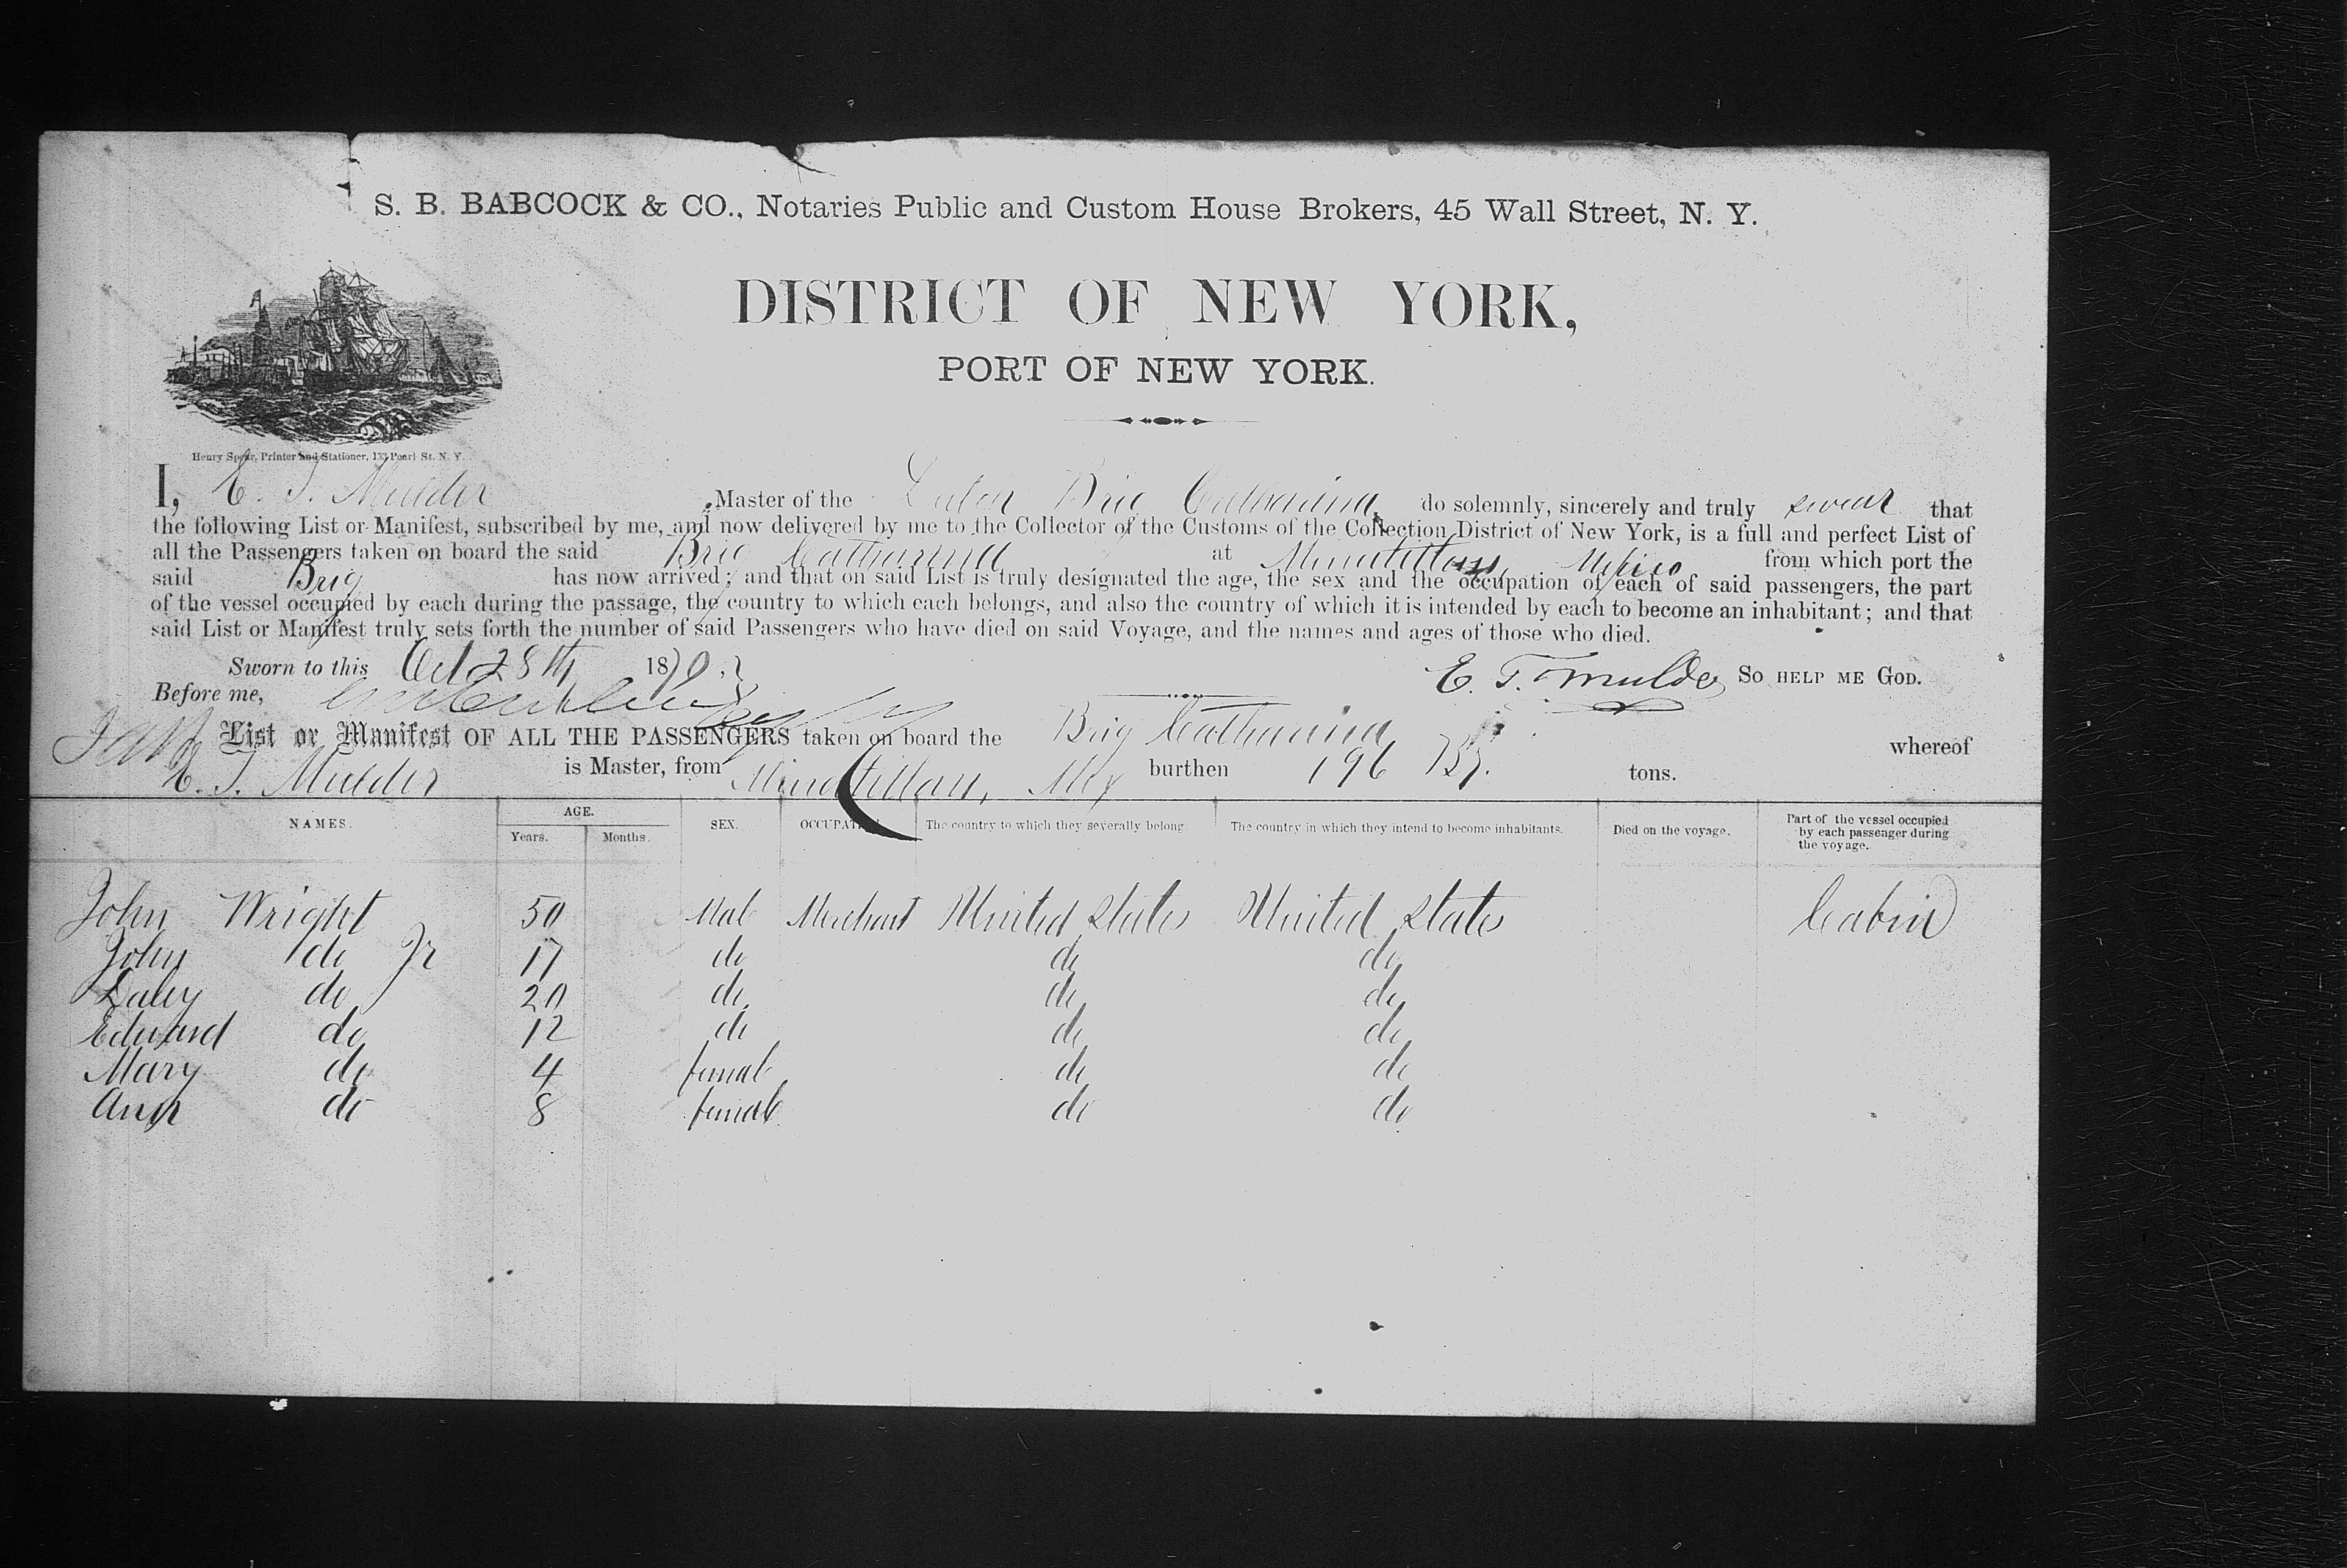 S. B. BABCOCK & CO., Notaries Public and Custom House Brokers, 45 Wall Street, N. Y.
DISTRICT OF NEW YORK,
PORT OF NEW YORK.
Henry Spear, Printer and Stationer, 133 Pearl St. N. Y.
I, E. T. Mulder Master of the Brig Catharina do solemnly, sincerely and truly swear that
the following List or Manifest, subscribed by me, and now delivered by me to the Collector of the Customs of the Collection District of New York, is a full and perfect List of
all the Passengers taken on board the said Brig Catharina at Minatitlan, Mexico from which port the
said Brig has now arrived; and that on said List is truly designated the age, the sex and the occupation of each of said passengers, the part
of the vessel occupied by each during the passage, the country to which each belongs, and also the country of which it is intended by each to become an inhabitant; and that
said List or Manifest truly sets forth the number of said Passengers who have died on said Voyage, and the names and ages of those who died.
Sworn to this Oct 28th 1870. E. T. Mulder SO HELP ME GOD.
Before me,
List or Manifest OF ALL THE PASSENGERS taken on board the Brig Catharina whereof
E. T. Mulder is Master, from Minatitlan, Mex burthen 196 tons.
NAMES. AGE. Years. Months. SEX. OCCUPATION. The country to which they severally belong. The country in which they intend to become inhabitants. Died on the voyage. Part of the vessel occupied by each passenger during the voyage.
John Wright 50 Male Merchant United States United States Cabin
John do Jr 17 do do do
do 20 do do do
Edward do 12 do do do
Mary do 4 female do do
Ann do 8 female do do